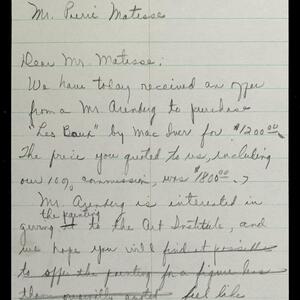 Mr. Pierri Matisse
Dear Mr. Matisse;
We have today received an offer
from a Mr. Arenberg to purchase
"Les Baux" by Mac Iver for $1200.00
The price you quoted to us, including
our 10% commission, was $1800.00 - ?
Mr. Arenberg is interested in
the painting
giving it to the Art Institute, and
we hope you will find it possible
to offer the painting for a figure less
than quoted feel like